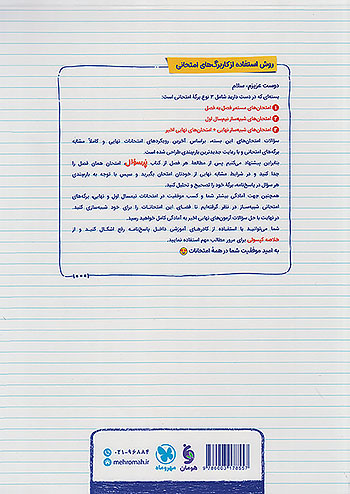 روش استفاده از کاربرگ‌های امتحانی
دوست عزیزم، سلام
بسته‌ای که در دست دارید شامل ۳ نوع برگهٔ امتحانی است:
۱ امتحان‌های مستمر فصل به فصل
۲ امتحان‌های شبیه‌ساز نیم‌سال اول
۳ امتحان‌های شبیه‌ساز نهایی + امتحان‌های نهایی اخیر
سؤالات امتحان‌های این بسته، براساس آخرین رویکردهای امتحانات نهایی و کاملاً مشابه
برگه‌های امتحانی و با رعایت جدیدترین بارم‌بندی طراحی شده است.
بنابراین پیشنهاد می‌کنیم پس از مطالعهٔ هر فصل از کتاب پرسؤال، امتحان همان فصل را
جدا کنید و در شرایط مشابه نهایی از خودتان امتحان بگیرید و سپس با توجه به بارم‌بندی
هر سؤال در پاسخ‌نامه، برگهٔ خود را تصحیح و تحلیل کنید.
همچنین جهت آمادگی بیشتر شما و کسب موفقیت در امتحانات نیم‌سال اول و نهایی، برگه‌های
امتحانی شبیه‌ساز در نظر گرفته‌ایم تا فضای این امتحانات را برای خود شبیه‌سازی کنید.
در نهایت با حل سؤالات آزمون‌های نهایی اخیر به آمادگی کامل خواهید رسید.
شما می‌توانید با استفاده از کادرهای آموزشی داخل پاسخ‌نامه رفع اشکال کنید و از
خلاصه کپسولی برای مرور مطالب مهم استفاده نمایید.
به امید موفقیت شما در همهٔ امتحانات
۰۲۱-۹۶۸۸۴
mehromah.ir
مهروماه
هومان
9 786003 178557